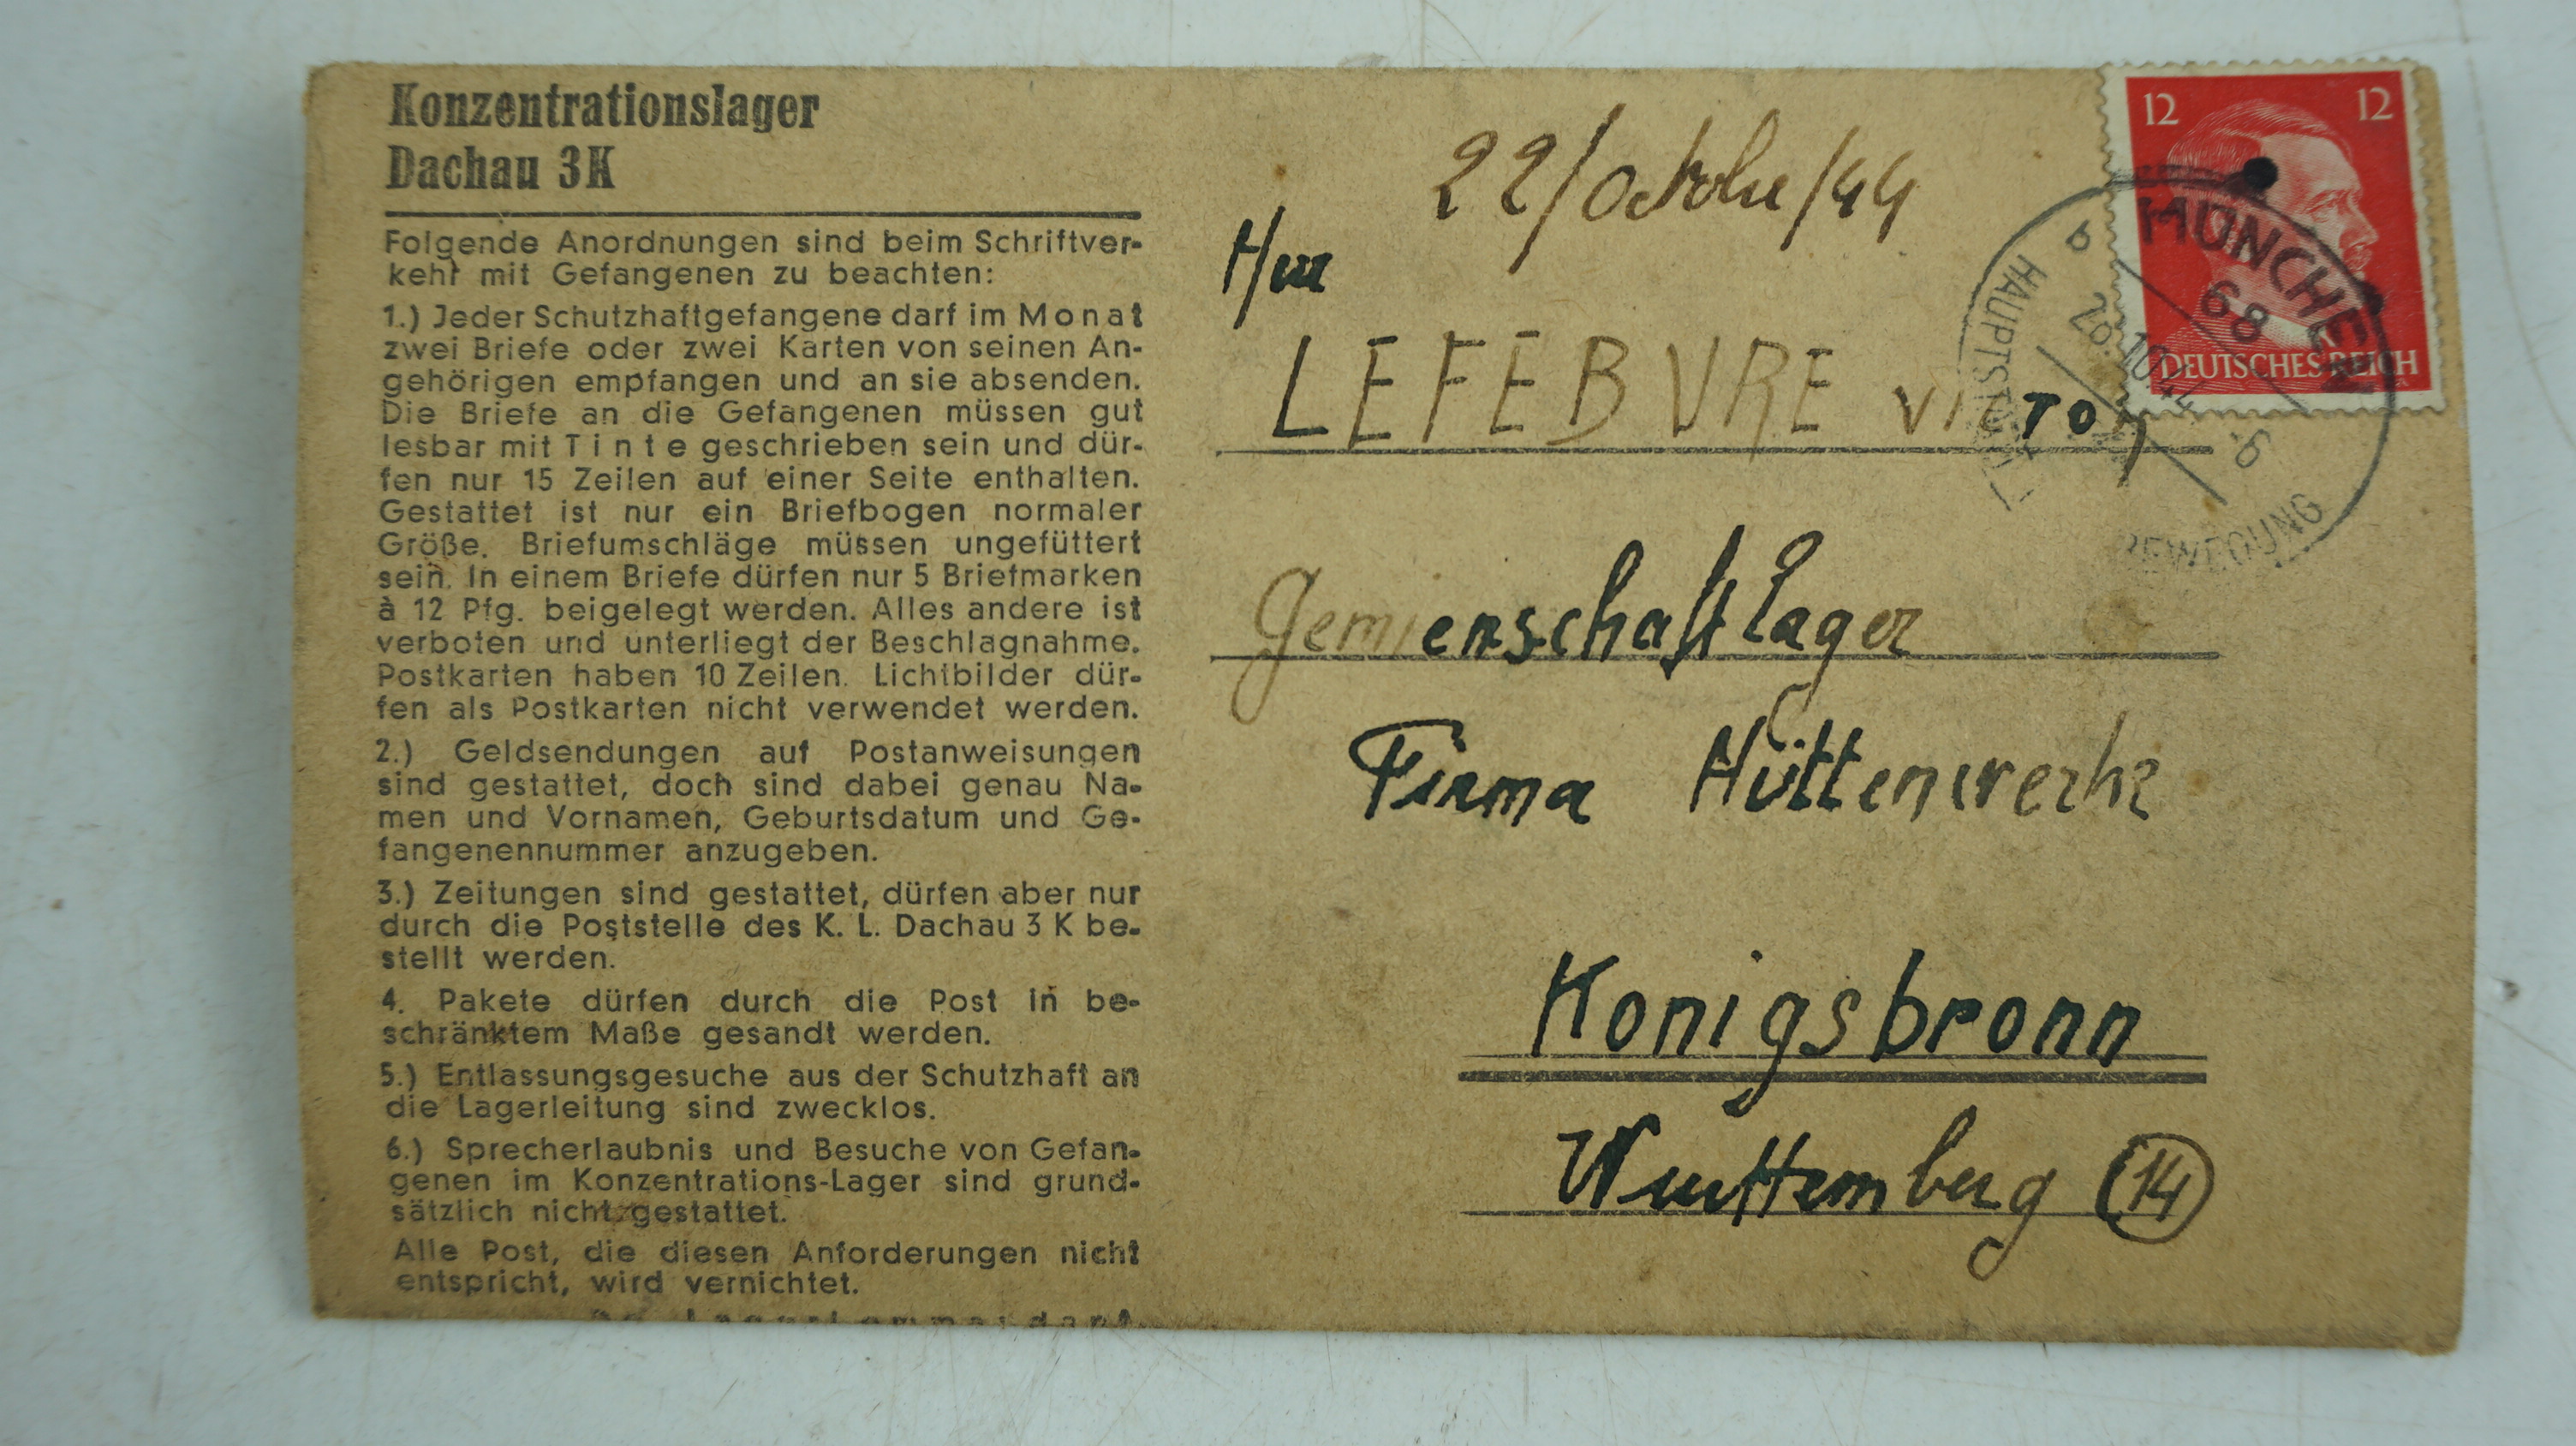 Konzentrationslager
Dachau 3K
Folgende Anordnungen sind beim Schriftver-
kehr mit Gefangenen zu beachten:
1.) Jeder Schutzhaftgefangene darf im Monat
zwei Briefe oder zwei Karten von seinen An-
gehörigen empfangen und an sie absenden.
Die Briefe an die Gefangenen müssen gut
lesbar mit Tinte geschrieben sein und dür-
fen nur 15 Zeilen auf einer Seite enthalten.
Gestattet ist nur ein Briefbogen normaler
Größe. Briefumschläge müssen ungefüttert
sein. In einem Briefe dürfen nur 5 Briefmarken
à 12 Pfg. beigelegt werden. Alles andere ist
verboten und unterliegt der Beschlagnahme.
Postkarten haben 10 Zeilen. Lichtbilder dür-
fen als Postkarten nicht verwendet werden.
2.) Geldsendungen auf Postanweisungen
sind gestattet, doch sind dabei genau Na-
men und Vornamen, Geburtsdatum und Ge-
fangenennummer anzugeben.
3.) Zeitungen sind gestattet, dürfen aber nur
durch die Poststelle des K. L. Dachau 3 K be-
stellt werden.
4. Pakete dürfen durch die Post in be-
schränktem Maße gesandt werden.
5.) Entlassungsgesuche aus der Schutzhaft an
die Lagerleitung sind zwecklos.
6.) Sprecherlaubnis und Besuche von Gefan-
genen im Konzentrations-Lager sind grund-
sätzlich nicht gestattet.
Alle Post, die diesen Anforderungen nicht
entspricht, wird vernichtet.
22/Octobre/44
LEFEBVRE
Gemienschaftlager
Firma Hüttenwerke
Konigsbronn
Wurttemberg (14)
12 12
DEUTSCHES REICH
MÜNCHEN
68
b b
HAUPTSTADT
BEWEGUNG